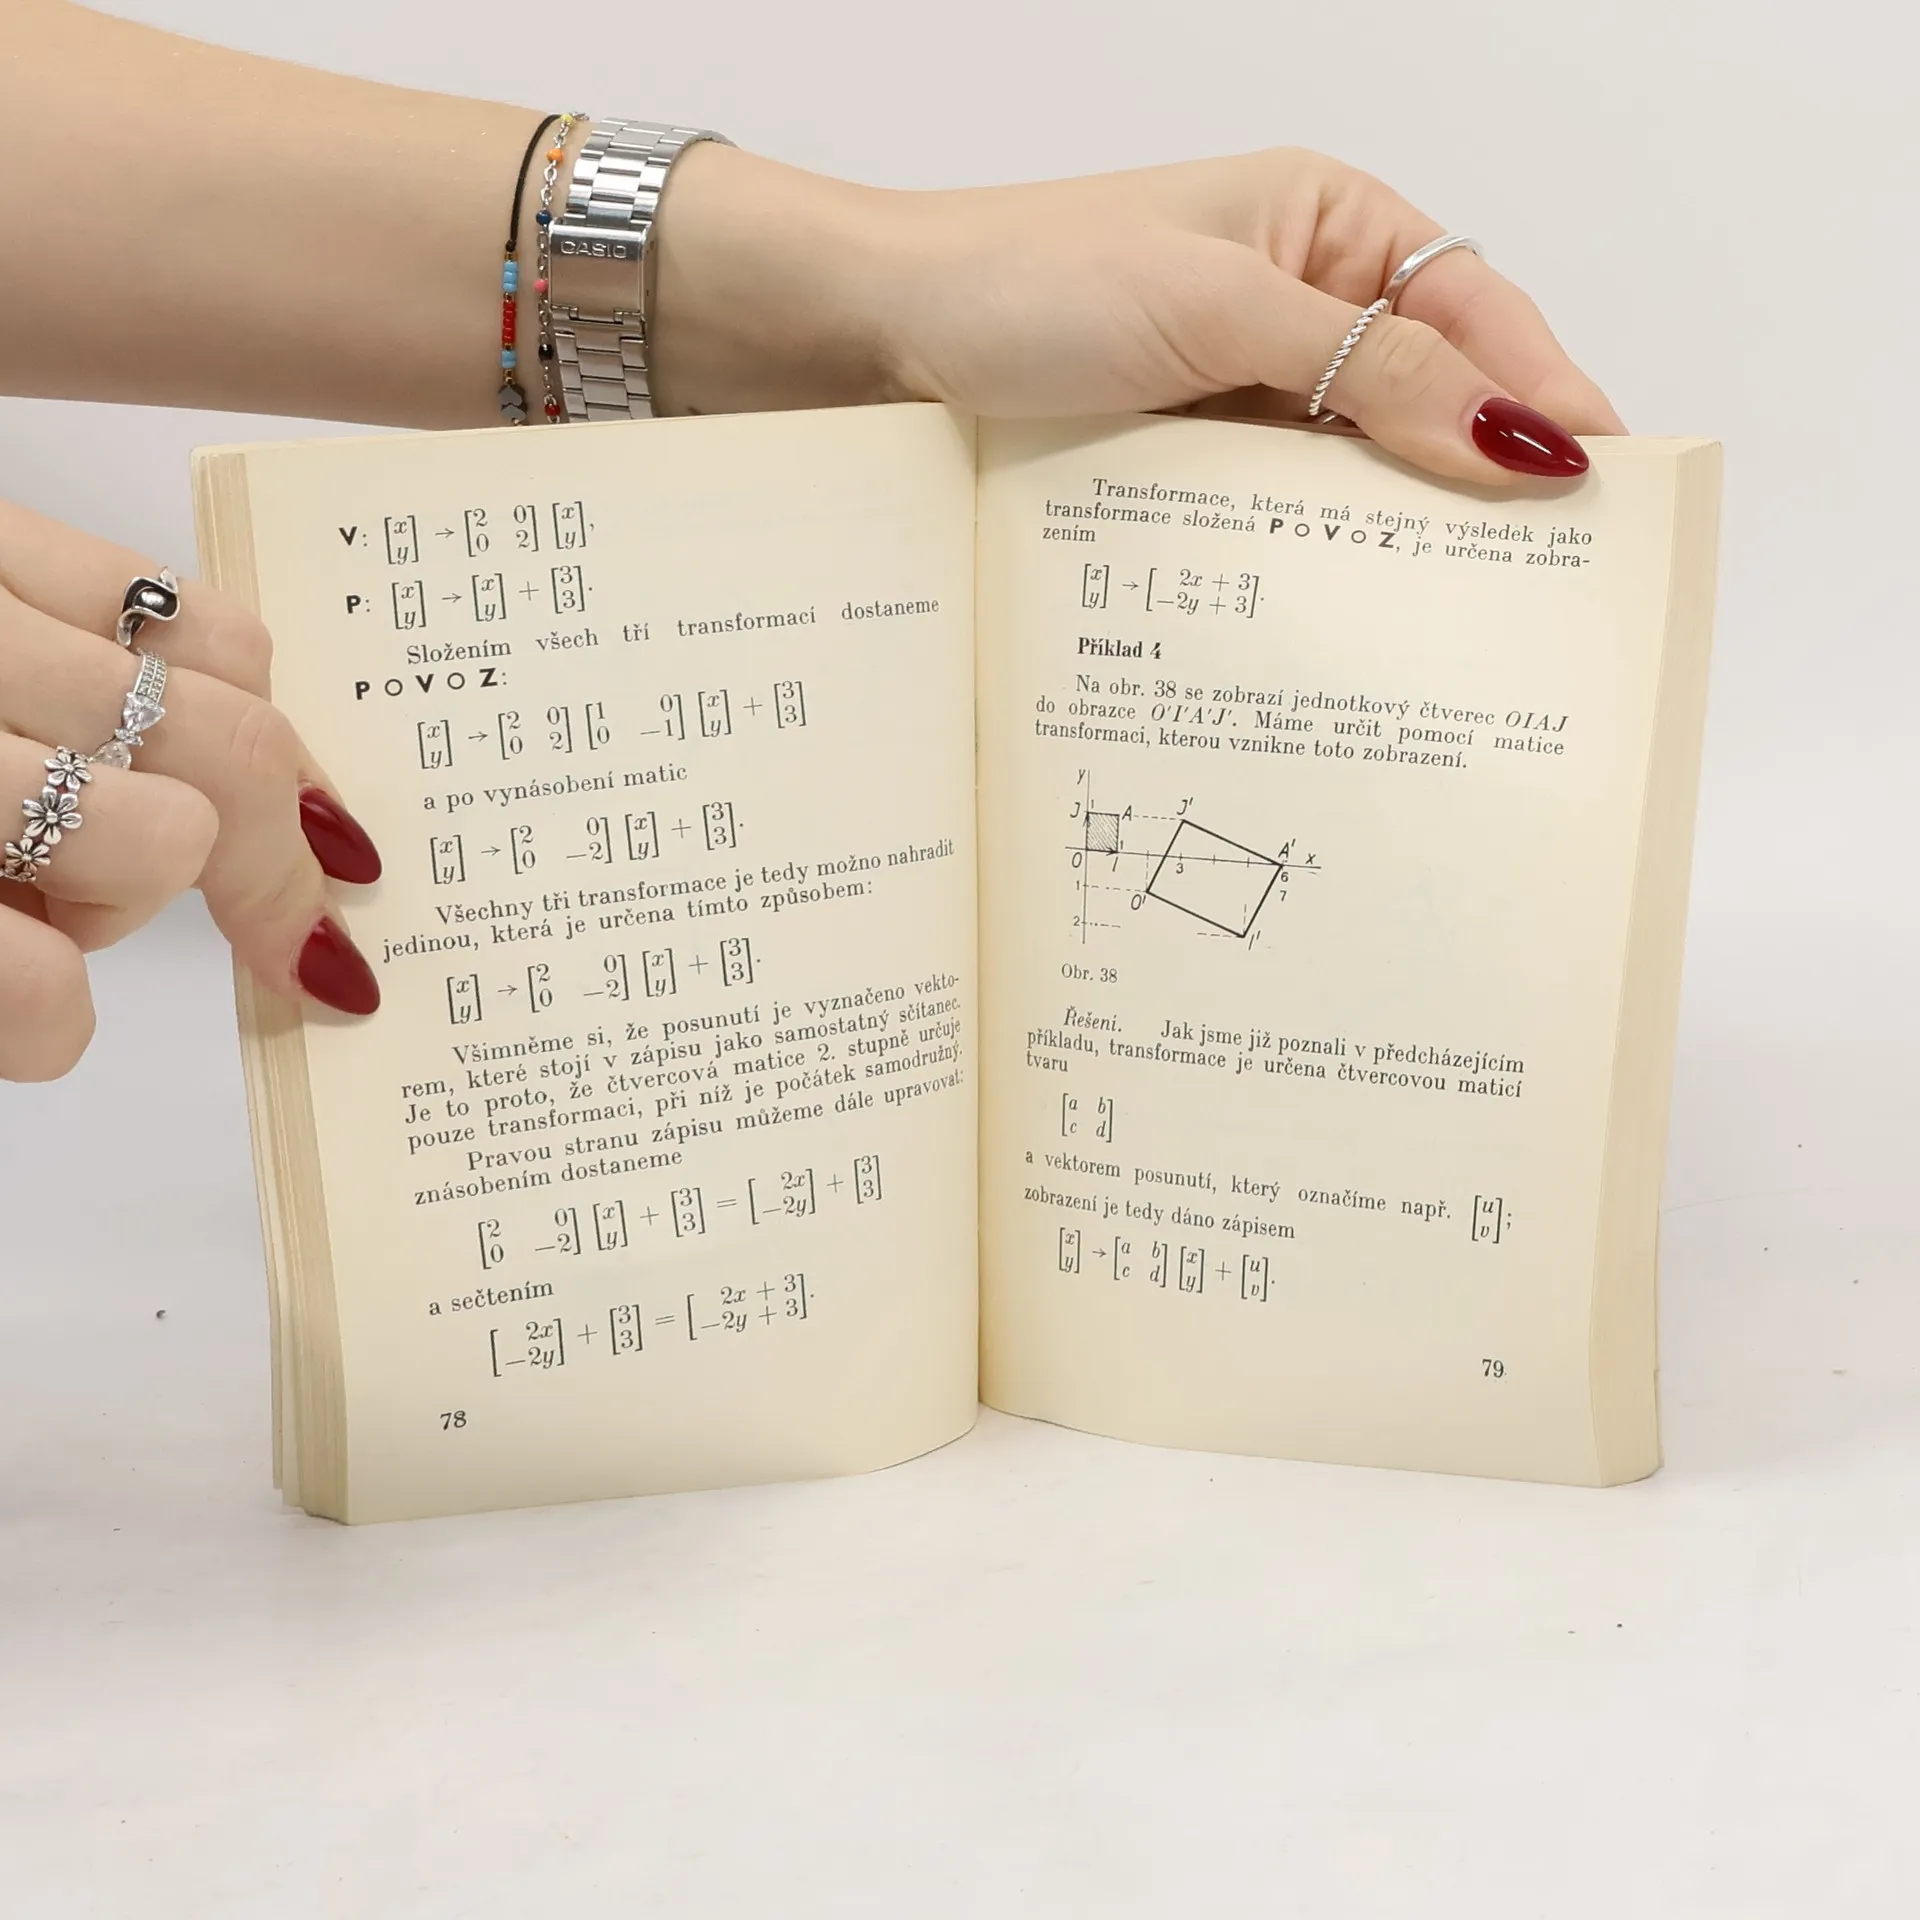 CASIO
V: [x y] → [2 0 0 2] [x y],
P: [x y] → [x y] + [3 3].
Složením všech tří transformací dostaneme
P O V O Z:
[x y] → [2 0 0 2] [1 0 0 −1] [x y] + [3 3]
a po vynásobení matic
[x y] → [2 0 0 −2] [x y] + [3 3].
Všechny tři transformace je tedy možno nahradit
jedinou, která je určena tímto způsobem:
[x y] → [2 0 0 −2] [x y] + [3 3].
Všimněme si, že posunutí je vyznačeno vekto-
rem, které stojí v zápisu jako samostatný sčítanec.
Je to proto, že čtvercová matice 2. stupně určuje
pouze transformaci, při níž je počátek samodružný.
Pravou stranu zápisu můžeme dále upravovat:
znásobením dostaneme
[2 0 0 −2] [x y] + [3 3] = [2x −2y] + [3 3]
a sečtením
[2x −2y] + [3 3] = [2x + 3 −2y + 3].
78
Transformace, která má stejný výsledek jako
transformace složená P O V O Z, je určena zobra-
zením
[x y] → [2x + 3 −2y + 3].
Příklad 4
Na obr. 38 se zobrazí jednotkový čtverec OIAJ
do obrazce O′I′A′J′. Máme určit pomocí matice
transformaci, kterou vznikne toto zobrazení.
y
J 1 A J′
A′ x
O I 1 3 6
1 O′ 7
2 I′
Obr. 38
Řešení. Jak jsme již poznali v předcházejícím
příkladu, transformace je určena čtvercovou maticí
tvaru
[a b c d]
a vektorem posunutí, který označíme např. [u v];
zobrazení je tedy dáno zápisem
[x y] → [a b c d] [x y] + [u v].
79